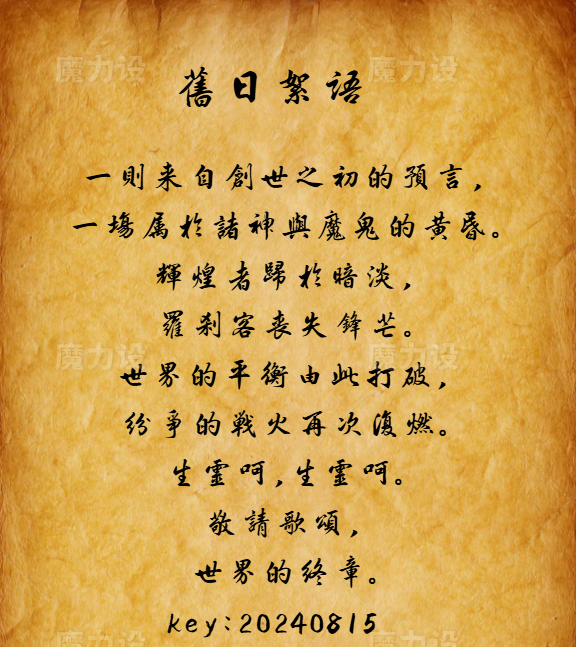 舊日絮語
一則来自創世之初的預言,
一塲属於諸神與魔鬼的黄昏。
輝煌者歸於暗淡,
羅刹客丧失鋒芒。
世界的平衡由此打破,
紛爭的戦火再次復燃。
生靈呵,生靈呵。
敬請歌頌,
世界的終章。
key:20240815
魔力设 魔力设
魔力设 魔力设
魔力设 魔力设